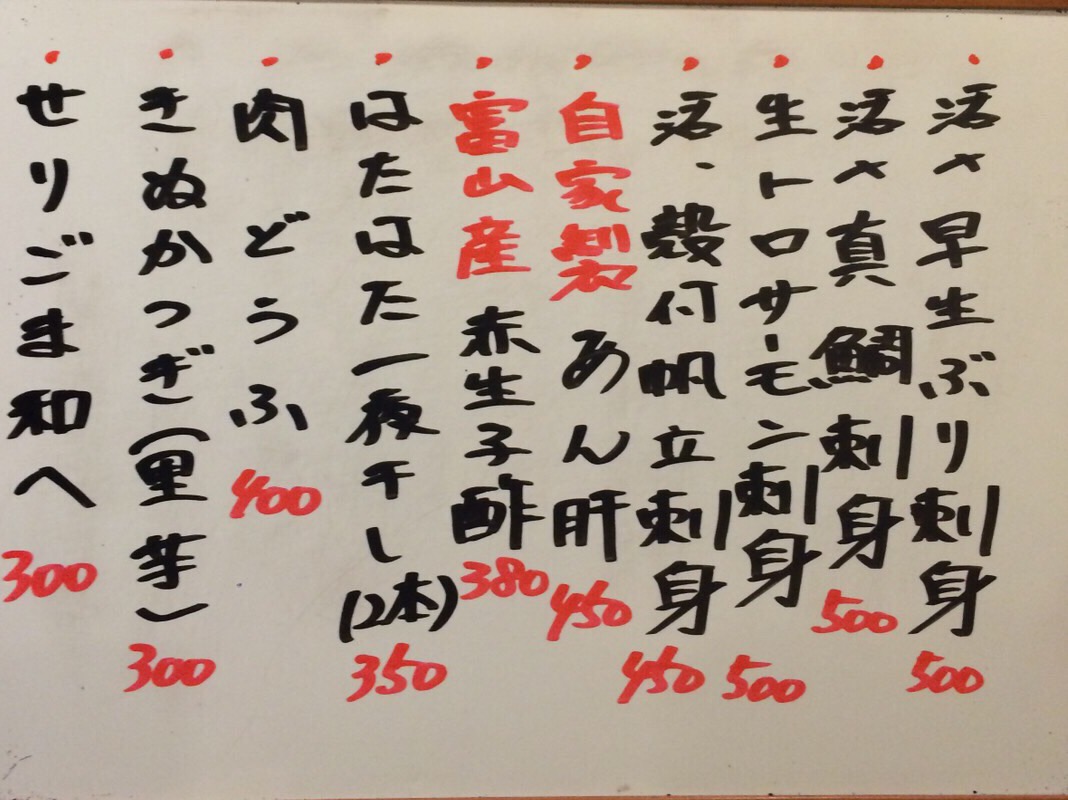 活〆早生ぶり刺身 500
活〆真鯛刺身 500
生トロサーモン刺身 500
活、殻付帆立刺身 450
自家製 あん肝 450
富山産 赤生子酢 380
はたはた一夜干し(2本) 350
肉どうふ 400
きぬかつぎ(里芋) 300
せりごま和へ 300